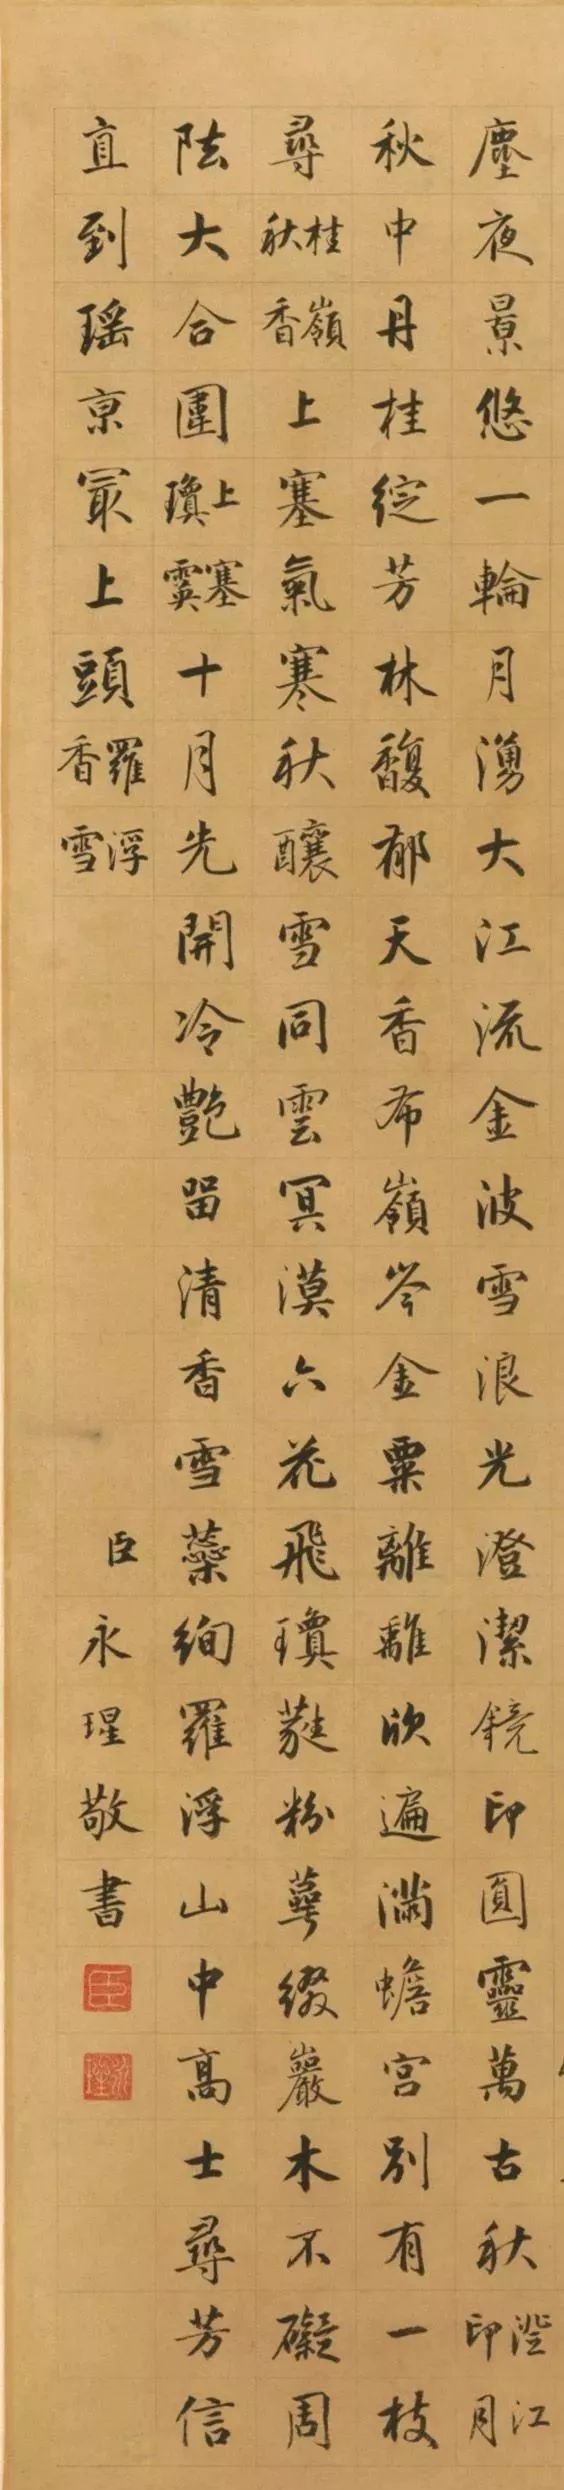 塵夜景悠一輪月湧大江流金波雪浪光澄潔鏡印圓靈萬古秋澄江印月
秋中丹桂綻芳林馥郁天香布嶺岑金粟離離欣遍滿蟾宮別有一枝
尋桂嶺秋香上塞氣寒秋釀雪同雲冥漠六花飛瓊蕤粉萼綴巖木不礙周
阹大合圍上塞瓊霙十月先開冷艷留清香雪蘂絢羅浮山中高士尋芳信
直到瑶京冣上頭羅浮香雪
臣永瑆敬書
臣
永瑆